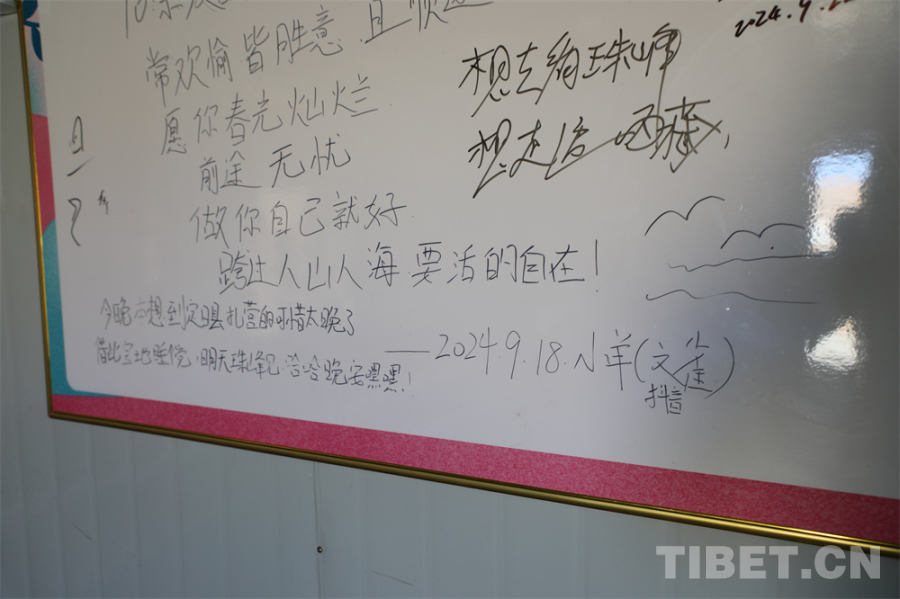 2024.9.22
常欢愉皆胜意 且顺遂
愿你春光灿烂
前途无忧
做你自己就好
跨过人山人海 要活的自在！
想去绹珠峰
想走泾西藏，
且
今晚本想到定日县扎营的可惜太晚了
借此宝地睡一晚，明天珠峰见，哈哈晚安嘿嘿！
——2024.9.18.小羊(文鉴)
抖音
TIBET.CN